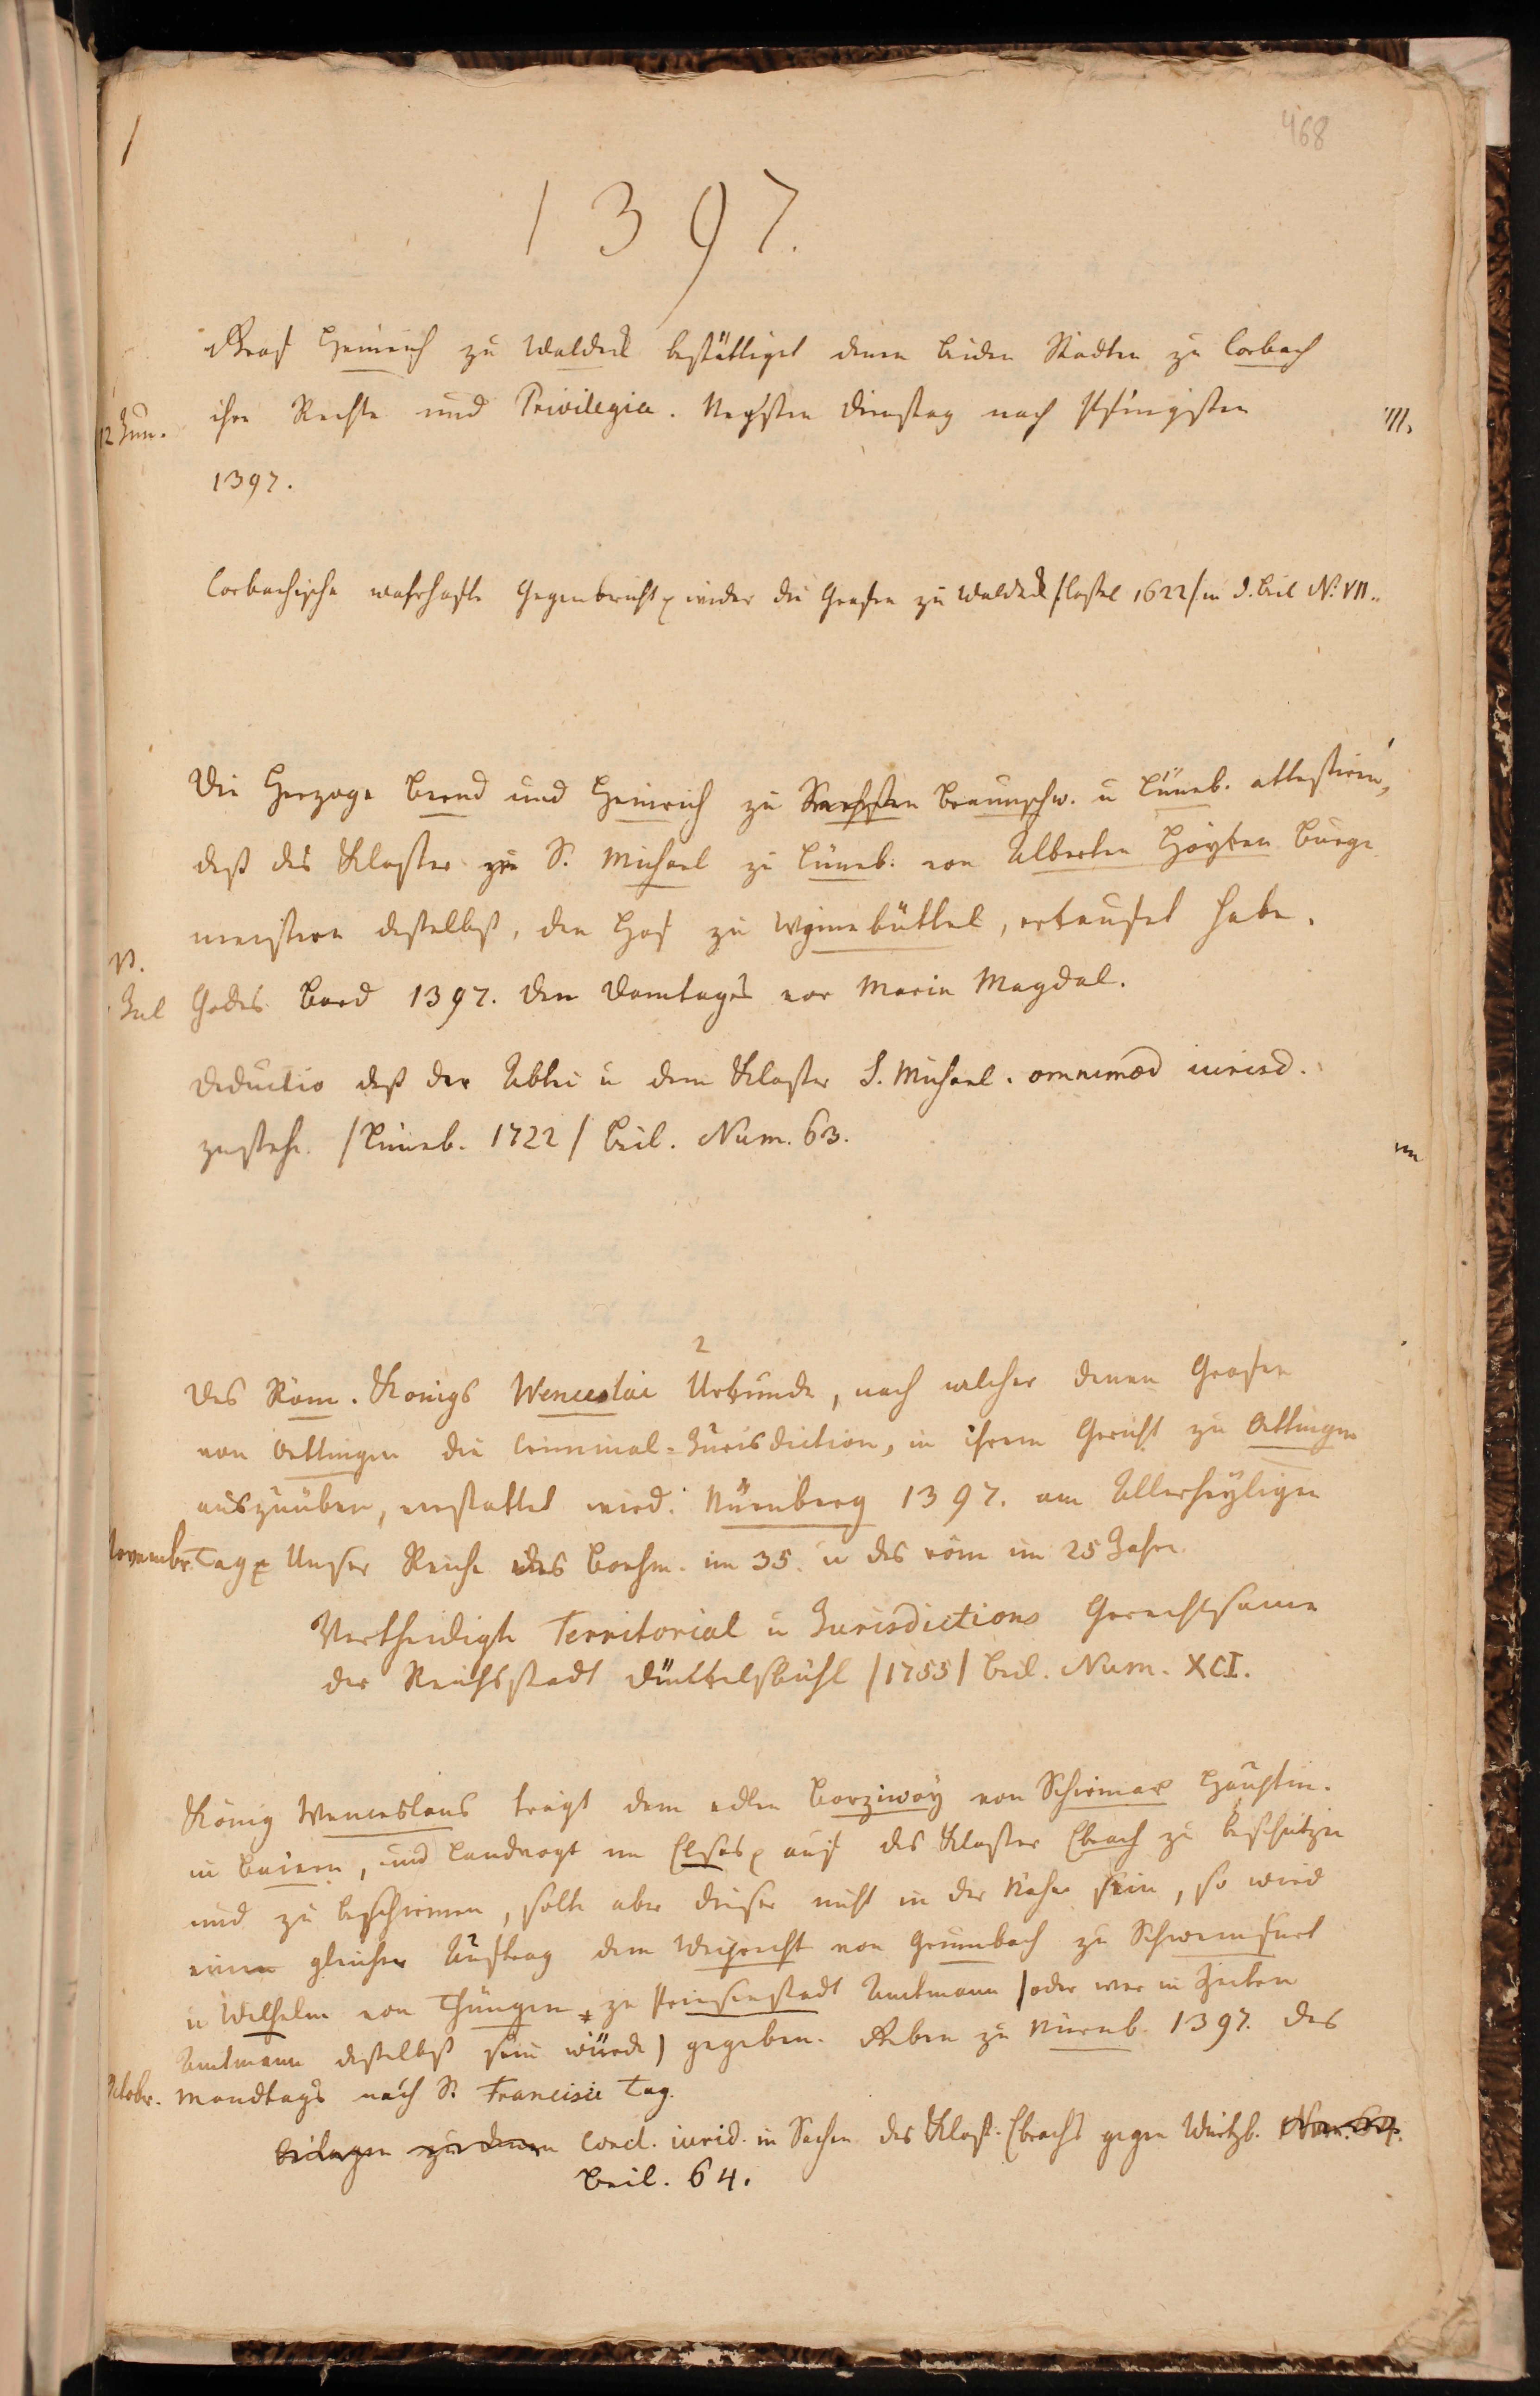 468
1397.
Graf Heinrich zu Waldeck bestättiget denen beiden Stadten zu Corbach
12 Jun. ihre Rechte und Privilegia. Negsten Dienstag nach Pfingsten
1397.
Corbachische wahrhafte Gegenbericht wider die Grafen zu Waldeck /Cassel 1622/ in d. Beil No. VII.
Die Herzoge Bernd und Heinrich zu Sachsen Braunschw. u Lüneb. attestiren,
daß das Kloster zu S. Michael zu Lüneb. von Alberten Hoyken Burge
meistern daselbst, den Hof zu Wynnebüttel, erkaufet habe.
Jul Godes Bord 1397. Den Domtages vor Marie Magdal.
Deductio daß der Abtei u dem Kloster S. Michael. omnimod iurisd.
zustehe. /Lüneb. 1722/ Beil. Num. 63.
2
Des Röm. Konigs Wenceslai Urkunde, nach welcher denen Grafen
von Oettingen die Criminal-Jurisdiction, in ihrem Gericht zu Ottingen
auszuüben, verstattet wird. Nürnberg 1397. am Allerheyligen
Novembr. Tag Unser Reiche des Boehm. im 35. u des röm im 25 Jahre
Vertheidigte Territorial u Jurisdictions Gerechtsame
der Reichsstadt Dünkelsbühl /1755/ Beil. Num. XCI.
König Wenceslaus trägt dem edlen Borziwoy von Schwinar Hauptm.
in Baiern, und Landvogt im Elsas auf das Kloster Ebrach zu beschützen
und zu beschirmen, solte aber dieser nicht in der Nähe sein, so wird
einen gleicher Auftrag dem Weiprecht von Grumbach zu Schweinfurt
u Wilhelm von Thüngen zu Prinsenstadt Amtmann /oder wer in Zeiten
Amtmann daselbst sein würde/ gegeben. Geben zu Nürnb. 1397. des
Octobr. Mondtags nach S. Francisci Tag.
Beilagen zu denen Concl. iurid. in Sachen des Klost. Ebrachs gegen Würtzb. Num. 64.
Beil. 64.